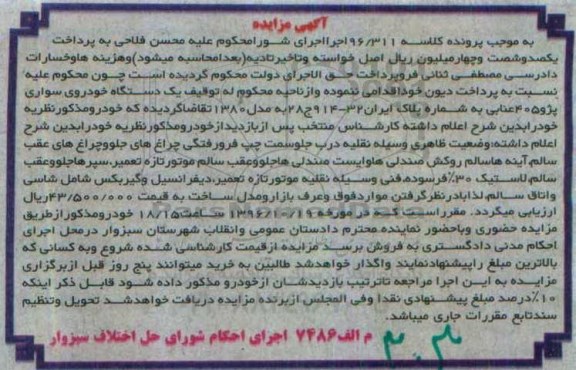 آگهی مزایده
به موجب پرونده کلاسه ۹۶/۳۱۱ اجرا اجرای شورا محکوم علیه محسن فلاحی به پرداخت
یکصدوشصت وچهارمیلیون ریال اصل خواسته وتاخیرتادیه(بعدامحاسبه میشود)وهزینه هاوخسارات
دادرسی مصطفی ثنائی فروپرداخت حق الاجرای دولت محکوم گردیده است چون محکوم علیه
نسبت به پرداخت دیون خوداقدامی ننموده وازناحیه محکوم له توقیف یک دستگاه خودروی سواری
پژو۴۰۵عنابی به شماره پلاک ایران۳۲-۹۱۴ج۲۸به مدل۱۳۸۰تقاضاگردیده که خودرومذکورنظریه
خودرابدین شرح اعلام داشته کارشناس منتخب پس ازبازدیدازخودرومذکورنظریه خودرابدین شرح
اعلام داشته:وضعیت ظاهری وسیله نقلیه درب جلوسمت چپ فرورفتگی چراغ های جلووچراغ های عقب
سالم.آینه هاسالم روکش صندلی هاوایست صندلی هاجلووعقب سالم موتورتازه تعمیر.سپرهاجلووعقب
سالم.لاستیک ۳۰٪فرسوده.فنی وسیله نقلیه موتورتازه تعمیر.دیفرانسیل وگیربکس شامل شاسی
واتاق سالم.لذابادرنظرگرفتن مواردفوق وعرف بازارومدل ساخت به قیمت ۴۳/۵۰۰/۰۰۰ریال
ارزیابی میگردد. مقرراست که در مورخه ۱۳۹۶/۱۰/۱۹ ساعت۱۸/۱۵ خودرومذکورازطریق
مزایده حضوری وباحضور نماینده محترم دادستان عمومی وانقلاب شهرستان سبزوار درمحل اجرای
احکام مدنی دادگستری به فروش برسد مزایده ازقیمت کارشناسی شده شروع وبه کسانی که
بالاترین مبلغ راپیشنهادنمایند واگذار خواهدشد طالبین به خرید میتوانند پنج روز قبل ازبرگزاری
مزایده به این اجرا مراجعه تاترتیب بازدیدشان ازخودرو مذکور داده شود قابل ذکر اینکه
۱۰٪درصد مبلغ پیشنهادی نقدا وفی المجلس ازبرنده مزایده دریافت خواهدشد تحویل وتنظیم
سندتابع مقررات جاری میباشد.
م الف۷۴۸۶ اجرای احکام شورای حل اختلاف سبزوار